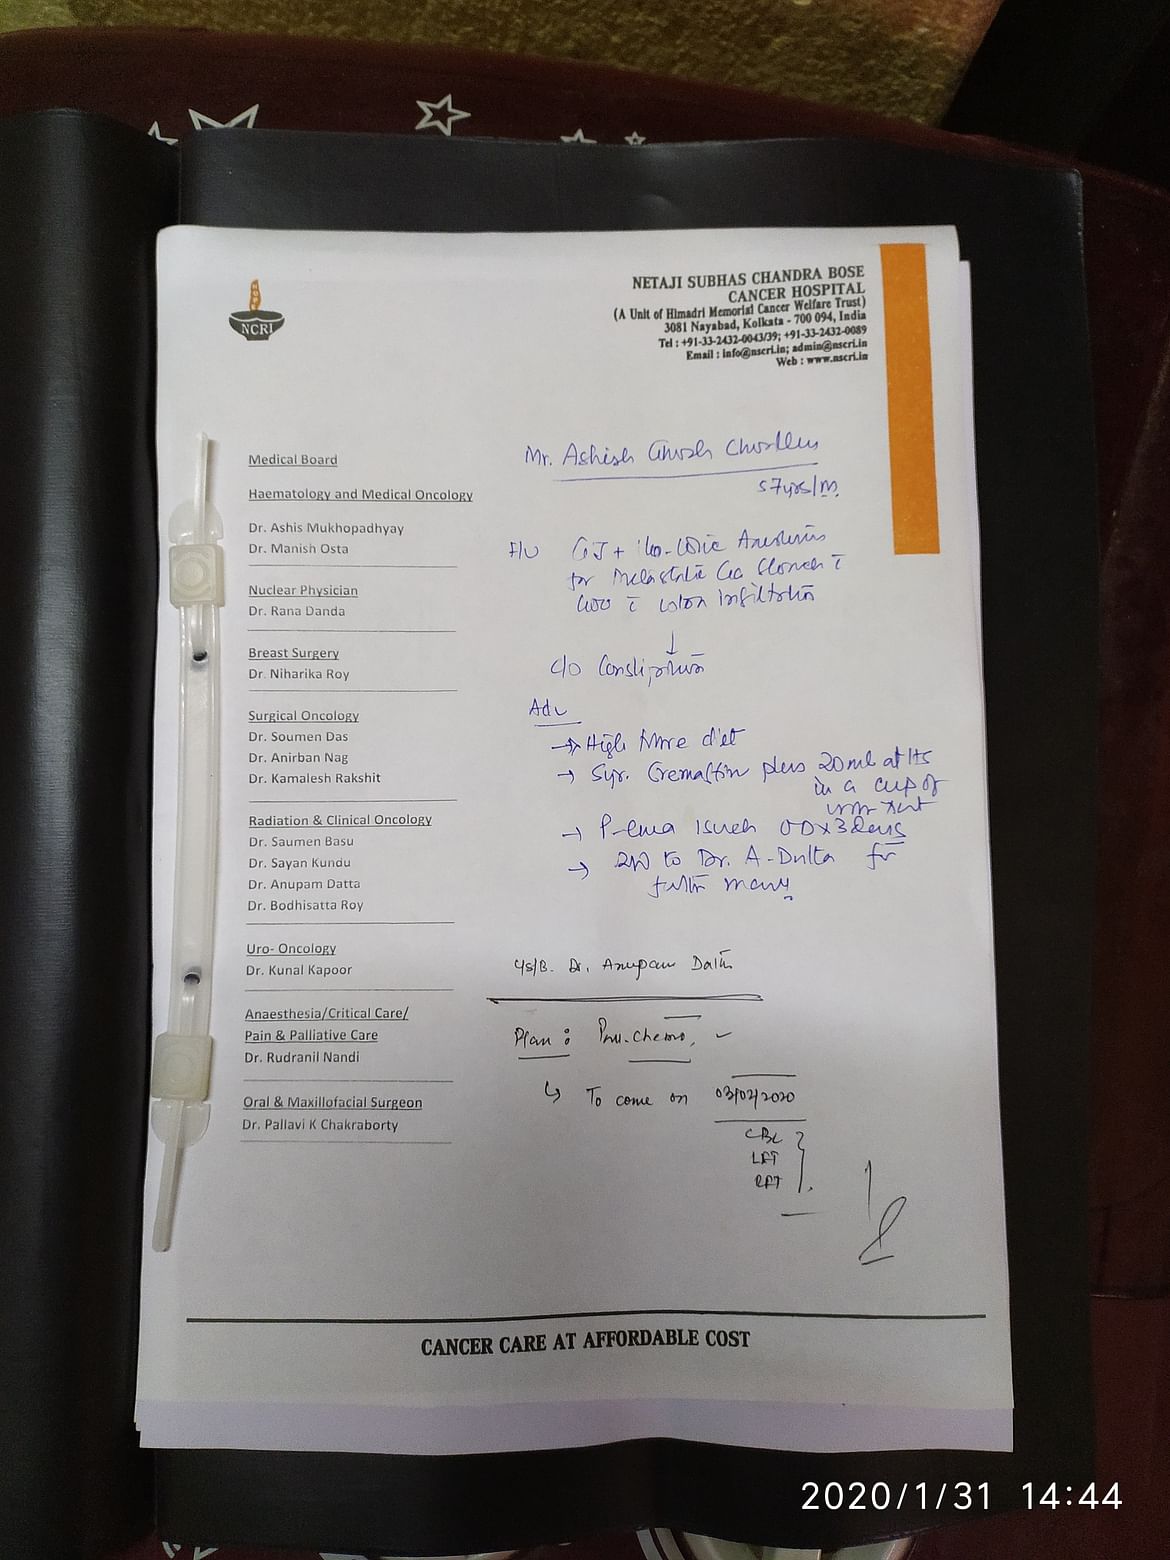 HOPE
NCRI
NETAJI SUBHAS CHANDRA BOSE
CANCER HOSPITAL
(A Unit of Himadri Memorial Cancer Welfare Trust)
3081 Nayabad, Kolkata - 700 094, India
Tel : +91-33-2432-0043/39; +91-33-2432-0089
Email : info@nscri.in; admin@nscri.in
Web : www.nscri.in
Medical Board
Haematology and Medical Oncology
Dr. Ashis Mukhopadhyay
Dr. Manish Osta
Nuclear Physician
Dr. Rana Danda
Breast Surgery
Dr. Niharika Roy
Surgical Oncology
Dr. Soumen Das
Dr. Anirban Nag
Dr. Kamalesh Rakshit
Radiation & Clinical Oncology
Dr. Saumen Basu
Dr. Sayan Kundu
Dr. Anupam Datta
Dr. Bodhisatta Roy
Uro- Oncology
Dr. Kunal Kapoor
Anaesthesia/Critical Care/
Pain & Palliative Care
Dr. Rudranil Nandi
Oral & Maxillofacial Surgeon
Dr. Pallavi K Chakraborty
Mr. Ashish Ghosh
57yrs/M
F/U GJ + Ileo-Colic
for Metastatic Ca
GOO c̄ colon Infiltration
↓
C/O Constipation
Adv
→ High fibre diet
→ Syr. Cremaffin plus 20ml at HS
in a cup of
→ P-enema OD x 3 days
→ to Dr. A. Dutta for
S/B. Dr. Anupam Datta
Plan : Chemo.
↳ To come on 03/02/2020
CBC
LFT
RFT
CANCER CARE AT AFFORDABLE COST
2020/1/31 14:44